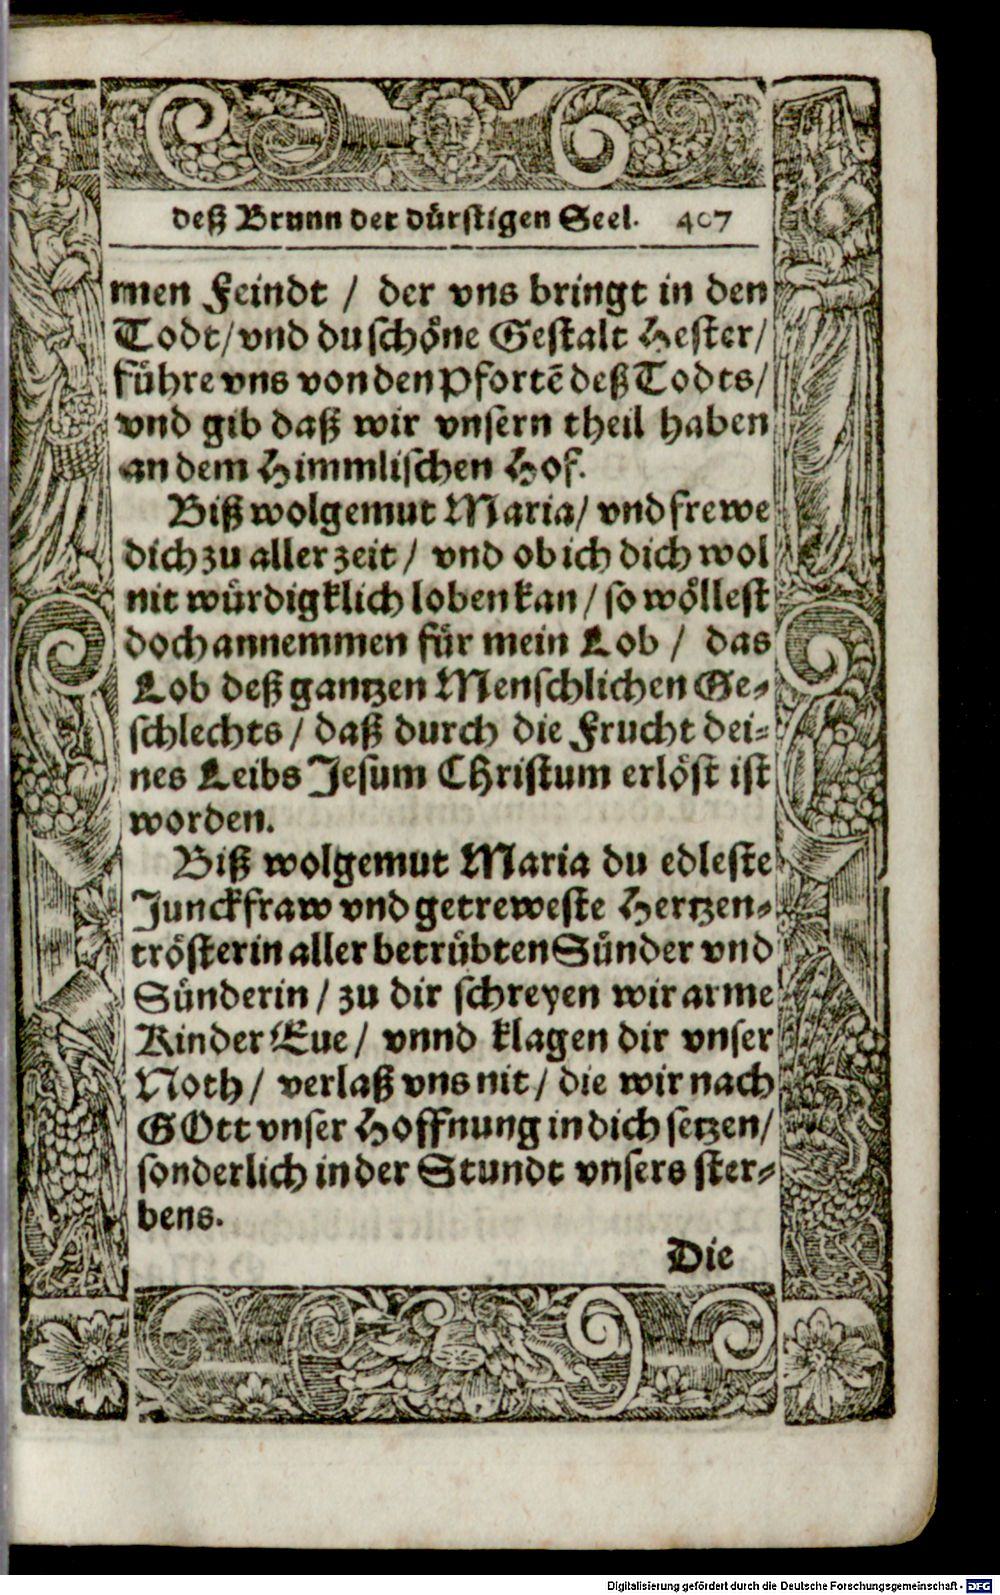 deß Brunn der dürstigen Seel. 407
men Feindt / der vns bringt in den
Todt/vnd du schöne Gestalt Hester/
führe vns von den Pfortē deß Todts/
vnd gib daß wir vnsern theil haben
an dem Himmlischen Hof.
Biß wolgemut Maria/ vnd frewe
dich zu aller zeit / vnd ob ich dich wol
nit würdigklich loben kan / so wöllest
doch annemmen für mein Lob / das
Lob deß gantzen Menschlichen Ge-
schlechts / daß durch die Frucht dei-
nes Leibs Jesum Christum erlöst ist
worden.
Biß wolgemut Maria du edleste
Junckfraw vnd getreweste Hertzen-
trösterin aller betrübten Sünder vnd
Sünderin / zu dir schreyen wir arme
Kinder Eue / vnnd klagen dir vnser
Noth / verlaß vns nit / die wir nach
GOtt vnser Hoffnung in dich setzen/
sonderlich in der Stundt vnsers ster-
bens.
Die
Digitalisierung gefördert durch die Deutsche Forschungsgemeinschaft - DFG